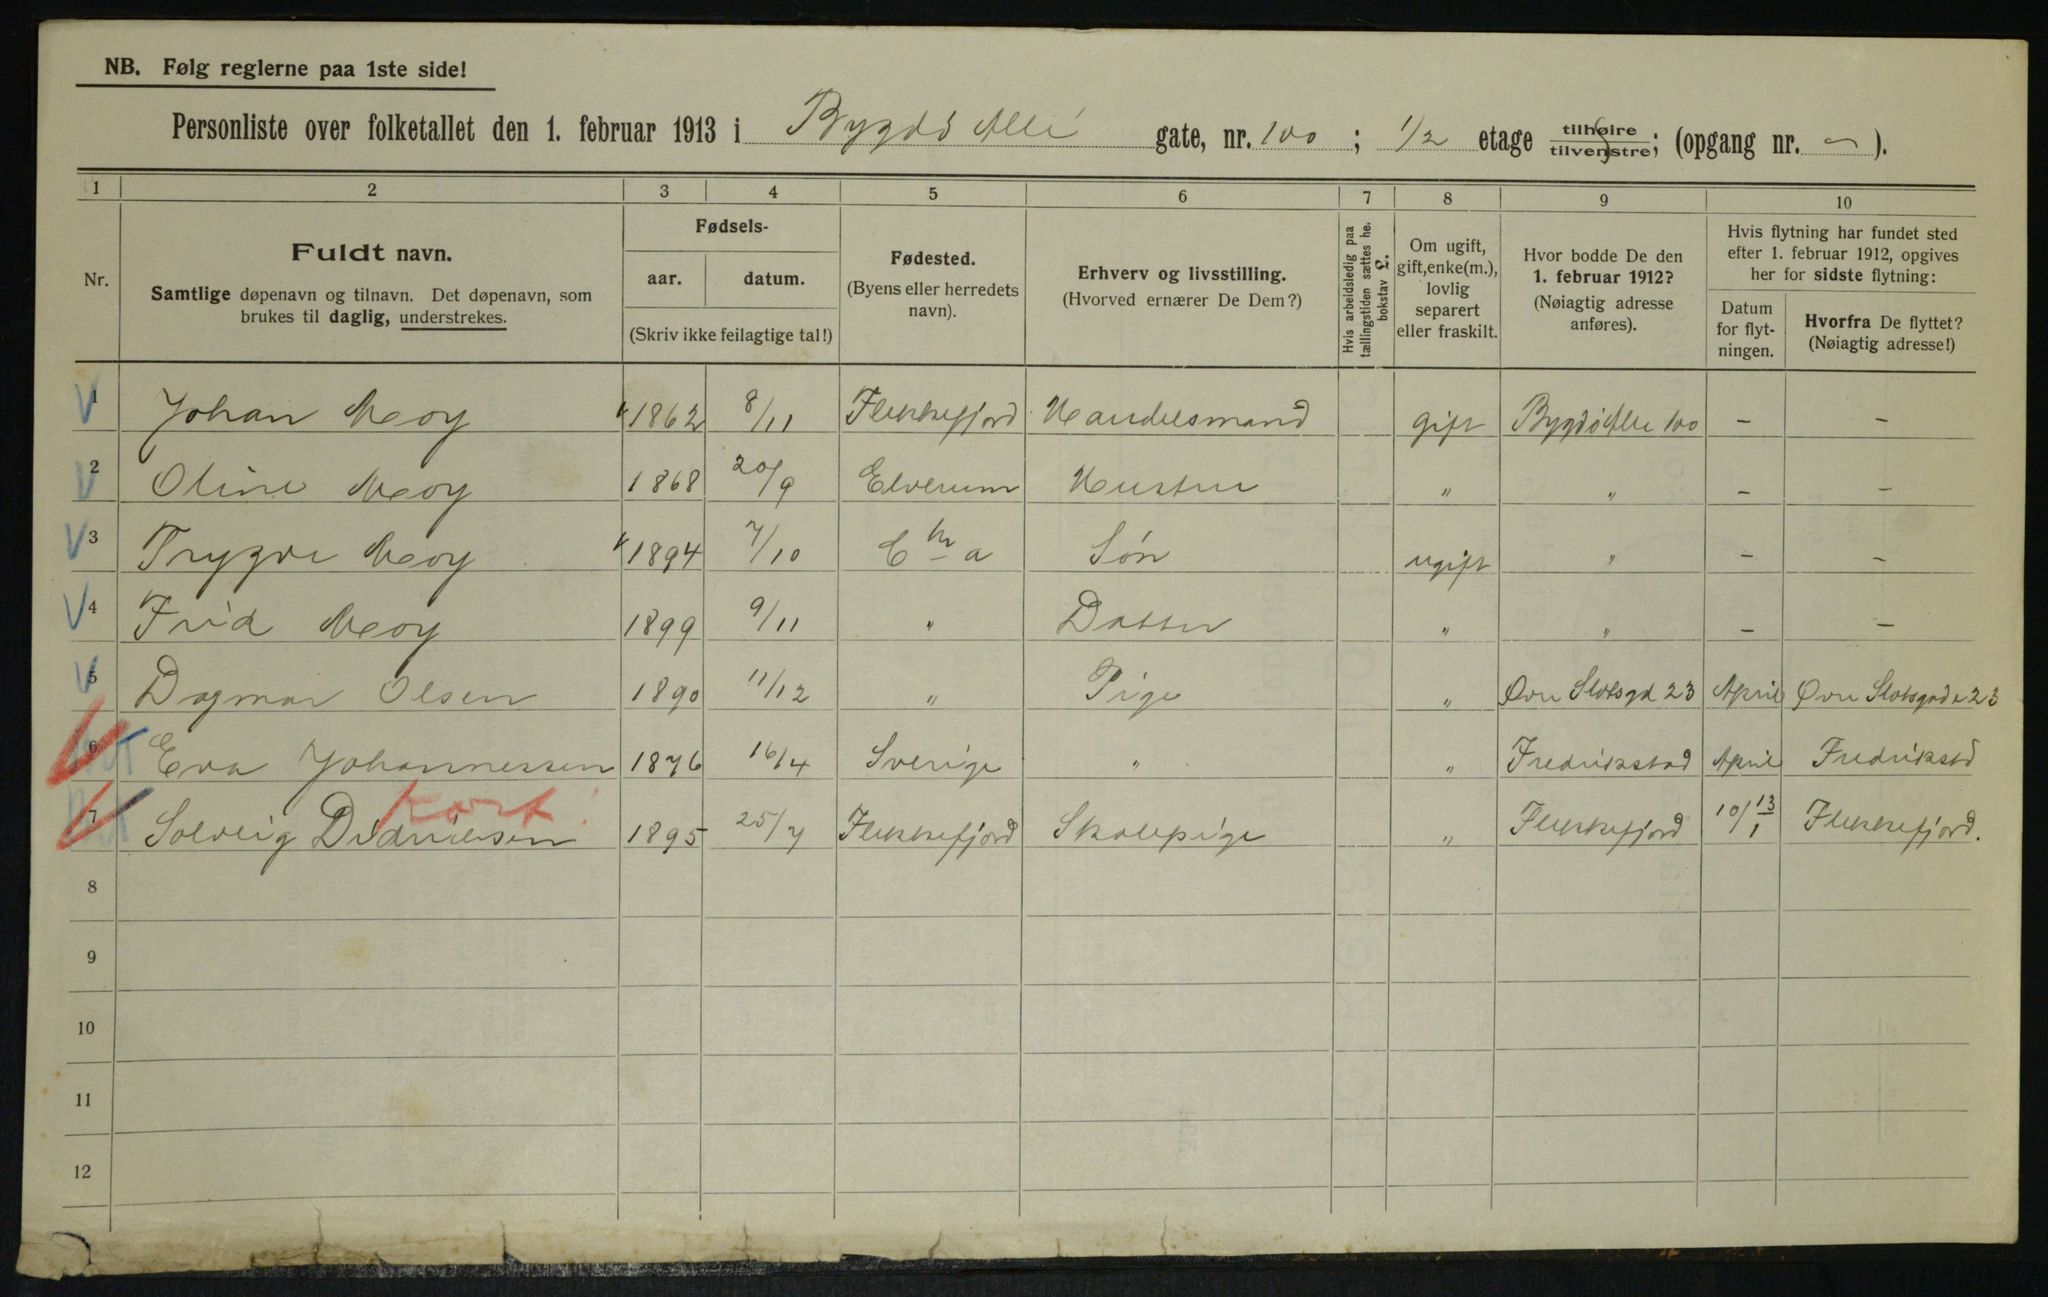 NB. Følg reglerne paa 1ste side!
Personliste over folketallet den 1. februar 1913 i Bygdö Allé gate, nr. 100 ; 1/2 etage tilhøire tilvenstre; (opgang nr. — ).
1 2 3 4 5 6 7 8 9 10
Nr.
Fuldt navn.
Samtlige døpenavn og tilnavn. Det døpenavn, som
brukes til daglig, understrekes.
Fødsels-
aar. datum.
(Skriv ikke feilagtige tal!)
Fødested.
(Byens eller herredets
navn).
Erhverv og livsstilling.
(Hvorved ernærer De Dem?)
Hvis arbeidsledig paa
tællingstiden sættes he.
bokstav £.
Om ugift,
gift, enke(m.),
lovlig
separert
eller fraskilt.
Hvor bodde De den
1. februar 1912?
(Nøiagtig adresse
anføres).
Hvis flytning har fundet sted
efter 1. februar 1912, opgives
her for sidste flytning:
Datum
for flyt-
ningen.
Hvorfra De flyttet?
(Nøiagtig adresse!)
1 Johan Moy 1862 8/11 Flekkefjord Handelsmand gift Bygdö Alle 100 — —
2 Oline Moy 1868 20/9 Elverum Hustru " " — —
3 Trygve Moy 1894 7/10 Chra Søn ugift " — —
4 Frid Moy 1899 9/11 " Datter " " — —
5 Dagmar Olsen 1890 11/12 " Pige " Øvre Slotsgd 23 April Øvre Slotsgade 23
6 Eva Johannessen 1876 16/4 Sverige " " Fredrikstad April Fredrikstd
Kort!
7 Solveig Didriksen 1895 25/7 Flekkefjord Skolepige " Flekkefjord 10/1 13 Flekkefjord.
8
9
10
11
12